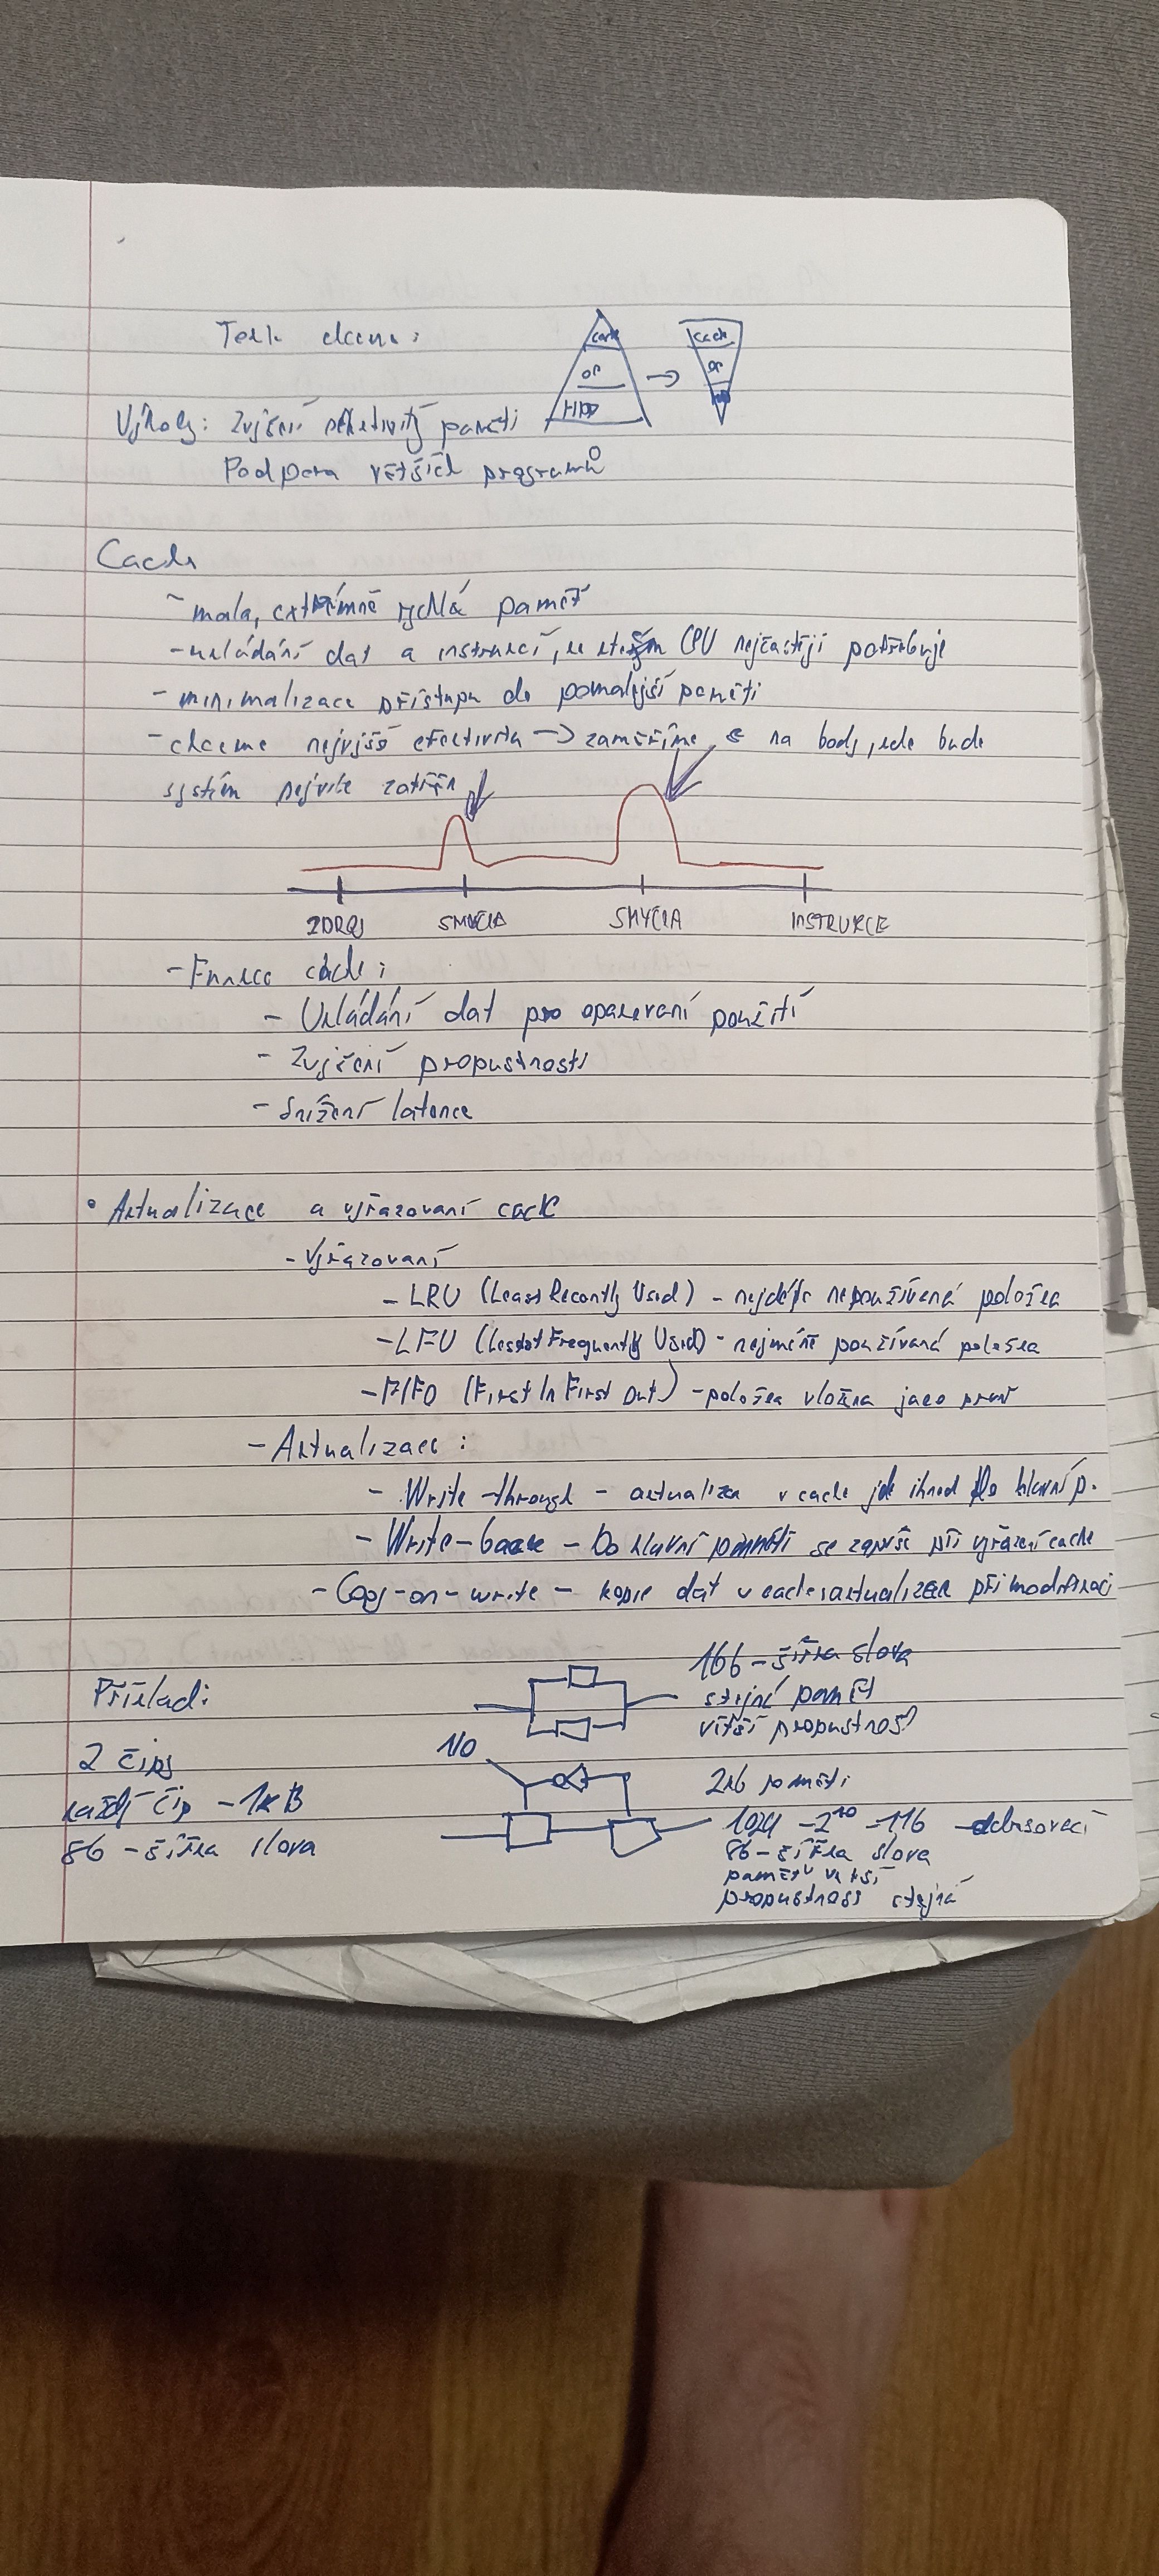 cach
OP
HDD
cach
OP
Výhody: Zvýšení efektivity paměti
Podpora větších programů
Cache
- mala, extrémně rychlá paměť
- ukládání dat a instrukcí, ke CPU nejčastěji potřebuje
- minimalizace přístupu do pomalejší paměti
- chceme nejvyšš efektivitu -> zaměříme se na body, kde bude
systém nejvíce zatížen
ZDROJ SMYČKA SMYČKA INSTRUKCE
- Funkce cache:
- Ukládání dat pro opakovaní použití
- Zvýšení propustnosti
- Snížení latence
• Aktualizace a vyřazovaní cache
- Vyřazovaní
- LRU (Least Recently Used) - nejdéle nepoužívená položka
- LFU (Least Frequently Used) - nejméně používaná položka
- FIFO (First In First Out) - položka vložena jako první
- Aktualizace:
- Write-through - aktualizace v cache jde ihned do hlavní p.
- Write-back - Do hlavní paměti se zapíše při vyřázení cache
- Copy-on-write - kopie dat v cache aktualizace při modifikaci
Příklad:
16b - šířka slova
stejná paměť
větší propustnost
2 čipy
každý čip - 1kB
8b - šířka slova
I/O
2kB paměti
1024 - 2¹⁰ - 11b
8b - šířka slova
paměť větší
propustnost stejná